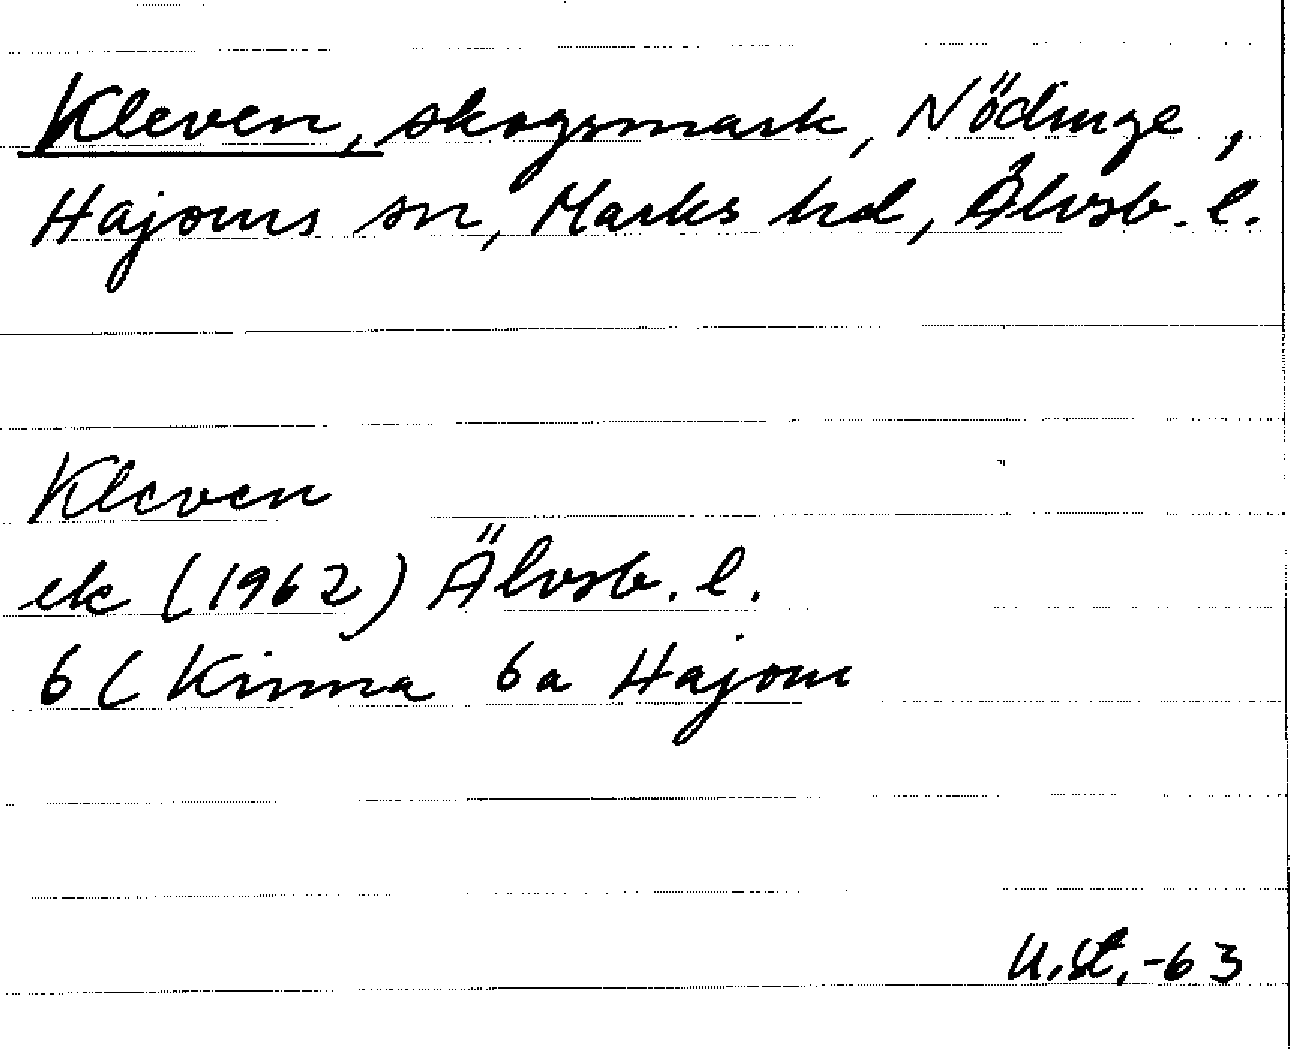 Kleven, skogsmark, Nödinge,
Hajoms sn, Marks hd, Älvsb. l.
Kleven
ek (1962) Älvsb. l.
6 ( Kinna 6a Hajom
U.St, -63